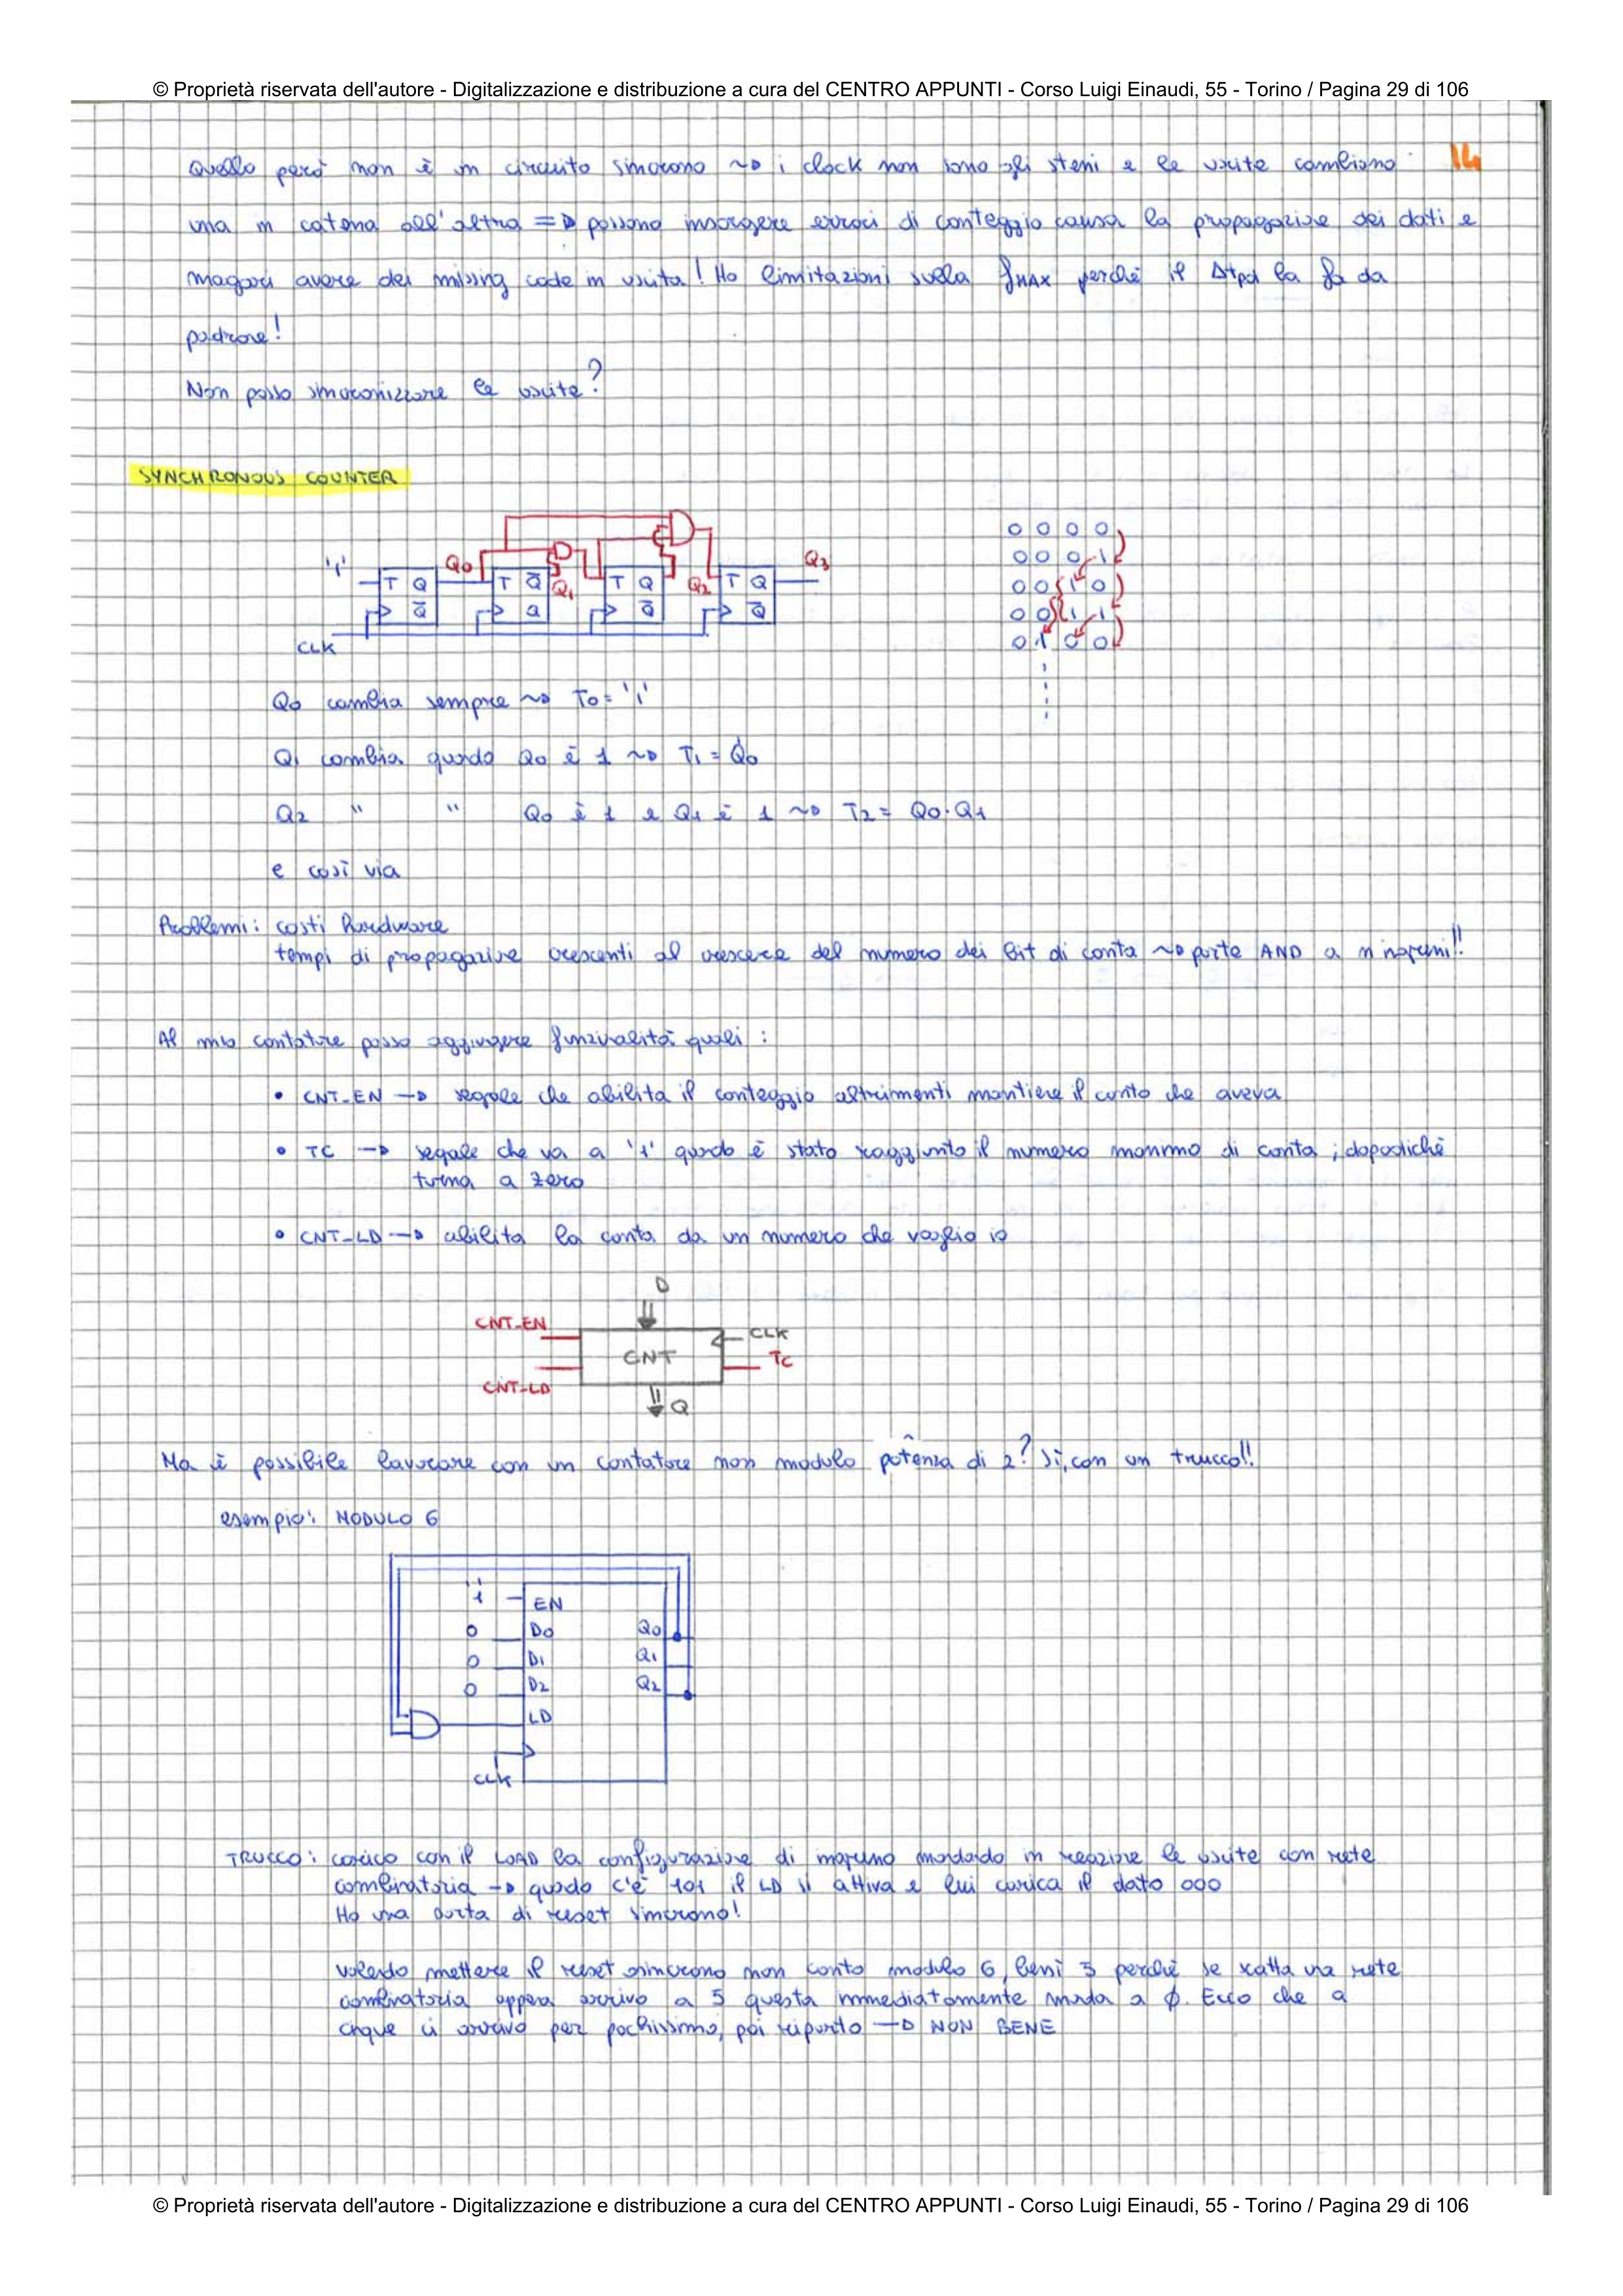 © Proprietà riservata dell'autore - Digitalizzazione e distribuzione a cura del CENTRO APPUNTI - Corso Luigi Einaudi, 55 - Torino / Pagina 29 di 106
14
Quello però non è un circuito sincrono ~> i clock non sono gli stessi e le uscite cambiano
una in catena all'altra => possono insorgere errori di conteggio causa la propagazione dei dati e
magari avere dei missing code in uscita! Ho limitazioni sulla fMAX perché il Δtpd la fa da
padrone!
Non posso sincronizzare le uscite?
SYNCHRONOUS COUNTER
'1' T Q Q̄ Q0 T Q̄ Q Q1 T Q Q̄ Q2 T Q Q̄ Q3
CLK
0 0 0 0
0 0 0 1
0 0 1 0
0 0 1 1
0 1 0 0
Q0 cambia sempre ~> T0 = '1'
Q1 cambia quando Q0 è 1 ~> T1 = Q0
Q2 " " Q0 è 1 e Q1 è 1 ~> T2 = Q0·Q1
e così via
Problemi: costi hardware
tempi di propagazione crescenti al crescere del numero dei bit di conta ~> porte AND a n ingressi!!
Al mio contatore posso aggiungere funzionalità quali :
• CNT-EN -> segnale che abilita il conteggio altrimenti mantiene il conto che aveva
• TC -> segnale che va a '1' quando è stato raggiunto il numero massimo di conta ; dopodiché
torna a zero
• CNT-LD -> abilita la conta da un numero che voglio io
D
CNT-EN
CLK
CNT
TC
CNT-LD
Q
Ma è possibile lavorare con un contatore non modulo potenza di 2? Sì, con un trucco!!
esempio: MODULO 6
'1' EN
0 D0 Q0
0 D1 Q1
0 D2 Q2
LD
CLK
TRUCCO: carico con il LOAD la configurazione di ingresso mandando in reazione le uscite con rete
combinatoria -> quando c'è 101 il LD si attiva e lui carica il dato 000
Ho una sorta di reset sincrono!
volendo mettere il reset asincrono non conto modulo 6, bensì 5 perché se scatta una rete
combinatoria appena arrivo a 5 questa immediatamente manda a ϕ. Ecco che a
cinque ci arrivo per pochissimo, poi riparto -> NON BENE
© Proprietà riservata dell'autore - Digitalizzazione e distribuzione a cura del CENTRO APPUNTI - Corso Luigi Einaudi, 55 - Torino / Pagina 29 di 106